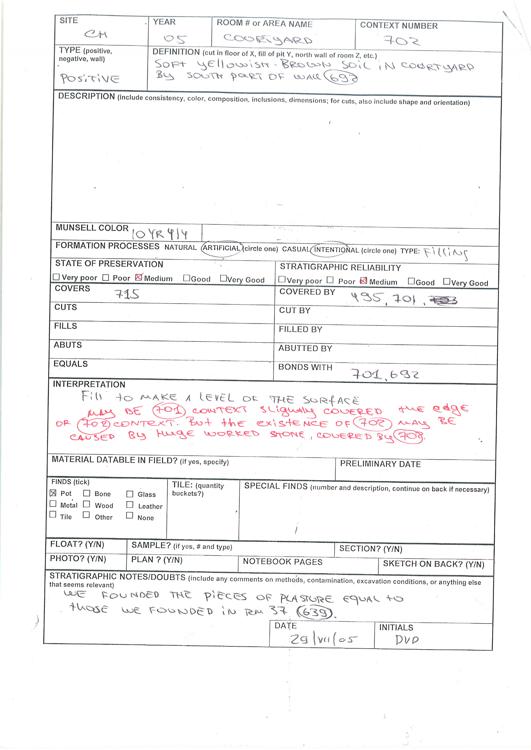 SITE YEAR ROOM # or AREA NAME CONTEXT NUMBER
CH 05 COURTYARD 702
TYPE (positive, negative, wall) DEFINITION (cut in floor of X, fill of pit Y, north wall of room Z, etc.)
POSITIVE SOFT YELLOWISH-BROWN SOIL IN COURTYARD
BY SOUTH PART OF WALL 692
DESCRIPTION (include consistency, color, composition, inclusions, dimensions; for cuts, also include shape and orientation)
MUNSELL COLOR 10YR 4/4
FORMATION PROCESSES NATURAL ARTIFICIAL (circle one) CASUAL INTENTIONAL (circle one) TYPE: Filling
STATE OF PRESERVATION STRATIGRAPHIC RELIABILITY
Very poor Poor Medium Good Very Good Very poor Poor Medium Good Very Good
COVERS 715 COVERED BY 495, 701,
CUTS CUT BY
FILLS FILLED BY
ABUTS ABUTTED BY
EQUALS BONDS WITH 701, 692
INTERPRETATION
Fill to MAKE A LEVEL OF THE SURFACE
MAY BE 701 CONTEXT SLIGHTLY COVERED the edge
OF 702 CONTEXT. But the existence OF 702 MAY BE
CAUSED BY HUGE WORKED STONE, COVERED BY
MATERIAL DATABLE IN FIELD? (if yes, specify) PRELIMINARY DATE
FINDS (tick) TILE: (quantity buckets?) SPECIAL FINDS (number and description, continue on back if necessary)
Pot Bone Glass
Metal Wood Leather
Tile Other None
FLOAT? (Y/N) SAMPLE? (if yes, # and type) SECTION? (Y/N)
PHOTO? (Y/N) PLAN ? (Y/N) NOTEBOOK PAGES SKETCH ON BACK? (Y/N)
STRATIGRAPHIC NOTES/DOUBTS (include any comments on methods, contamination, excavation conditions, or anything else
that seems relevant)
WE FOUNDED THE PIECES OF PLASTURE EQUAL TO
THOSE WE FOUNDED IN RM 37 (639).
DATE INITIALS
29/VII/05 DVD